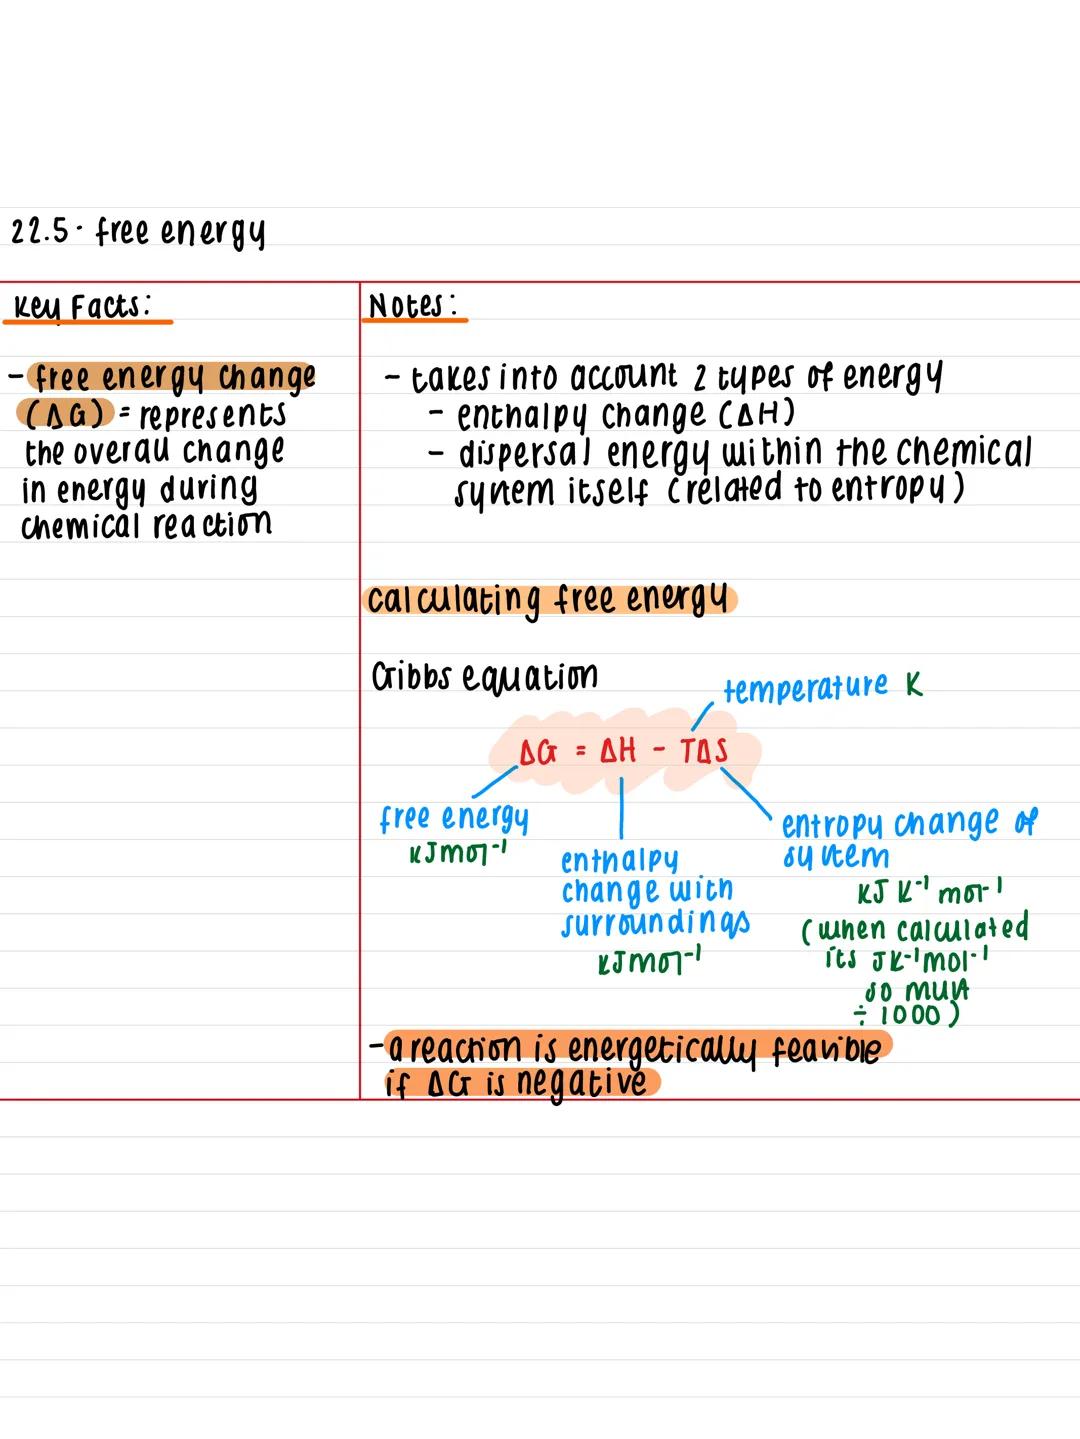 22.5 - free energy
Key Facts:
- free energy change
(ΔG) = represents
the overall change
in energy during
chemical reaction
Notes:
- takes into account 2 types of energy
- enthalpy change (ΔH)
- dispersal energy within the chemical
system itself (related to entropy)
calculating free energy
Gibbs equation
temperature K
ΔG = ΔH - TΔS
free energy
KJmol⁻¹
enthalpy
change with
surroundings
KJmol⁻¹
entropy change of
system
KJ K⁻¹ mol⁻¹
(when calculated
its JK⁻¹mol⁻¹
so must
÷1000)
- a reaction is energetically feasible
if ΔG is negative